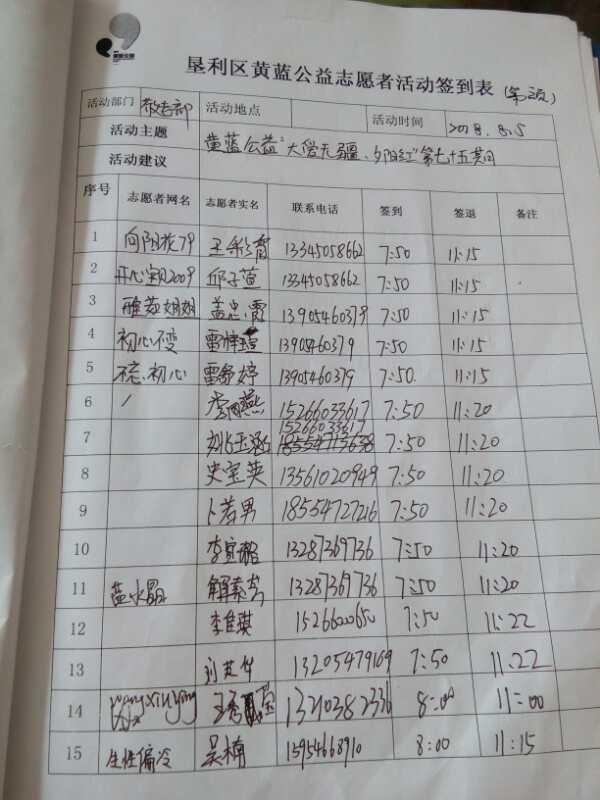 垦利区黄蓝公益志愿者活动签到表 (第二页)
活动部门 敬老部 活动地点 活动时间 2018.8.5
活动主题 黄蓝公益"大爱无疆、夕阳红"第七十五期
活动建议
序号 志愿者网名 志愿者实名 联系电话 签到 签退 备注
1 向阳花79 王彩霞 13345058662 7:50 11:15
2 开心宝贝2009 邱子萱 13345058662 7:50 11:15
3 雅茹姐姐 盖忠霞 13905460379 7:50 11:15
4 初心不变 雷梓瑄 13905460379 7:50 11:15
5 不忘初心 雷舒婷 13905460379 7:50 11:15
6 / 李丽燕 15266033617 7:50 11:20
7 15266033617 7:50 11:20
8 史宝英 13561020949 7:50 11:20
9 卜若男 18554727216 7:50 11:20
10 李宜璐 13287369736 7:50 11:20
11 蓝水晶 解素芳 13287369736 7:50 11:20
12 李佳琪 15266000650 7:50 11:22
13 刘芝华 13205479169 7:50 11:22
14 13210382336 8:00 11:00
15 生性偏冷 吴楠 15954668910 8:00 11:15